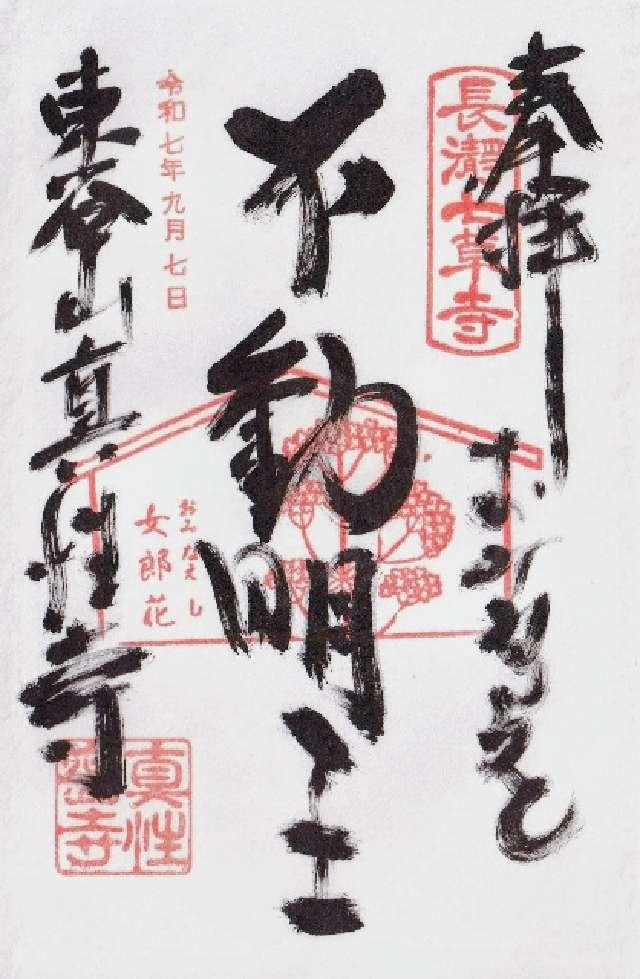 奉拝
長瀞七草寺
おみなえし
不動明王
令和七年九月七日
おみなえし
女郎花
東谷山真性寺
真性
寺